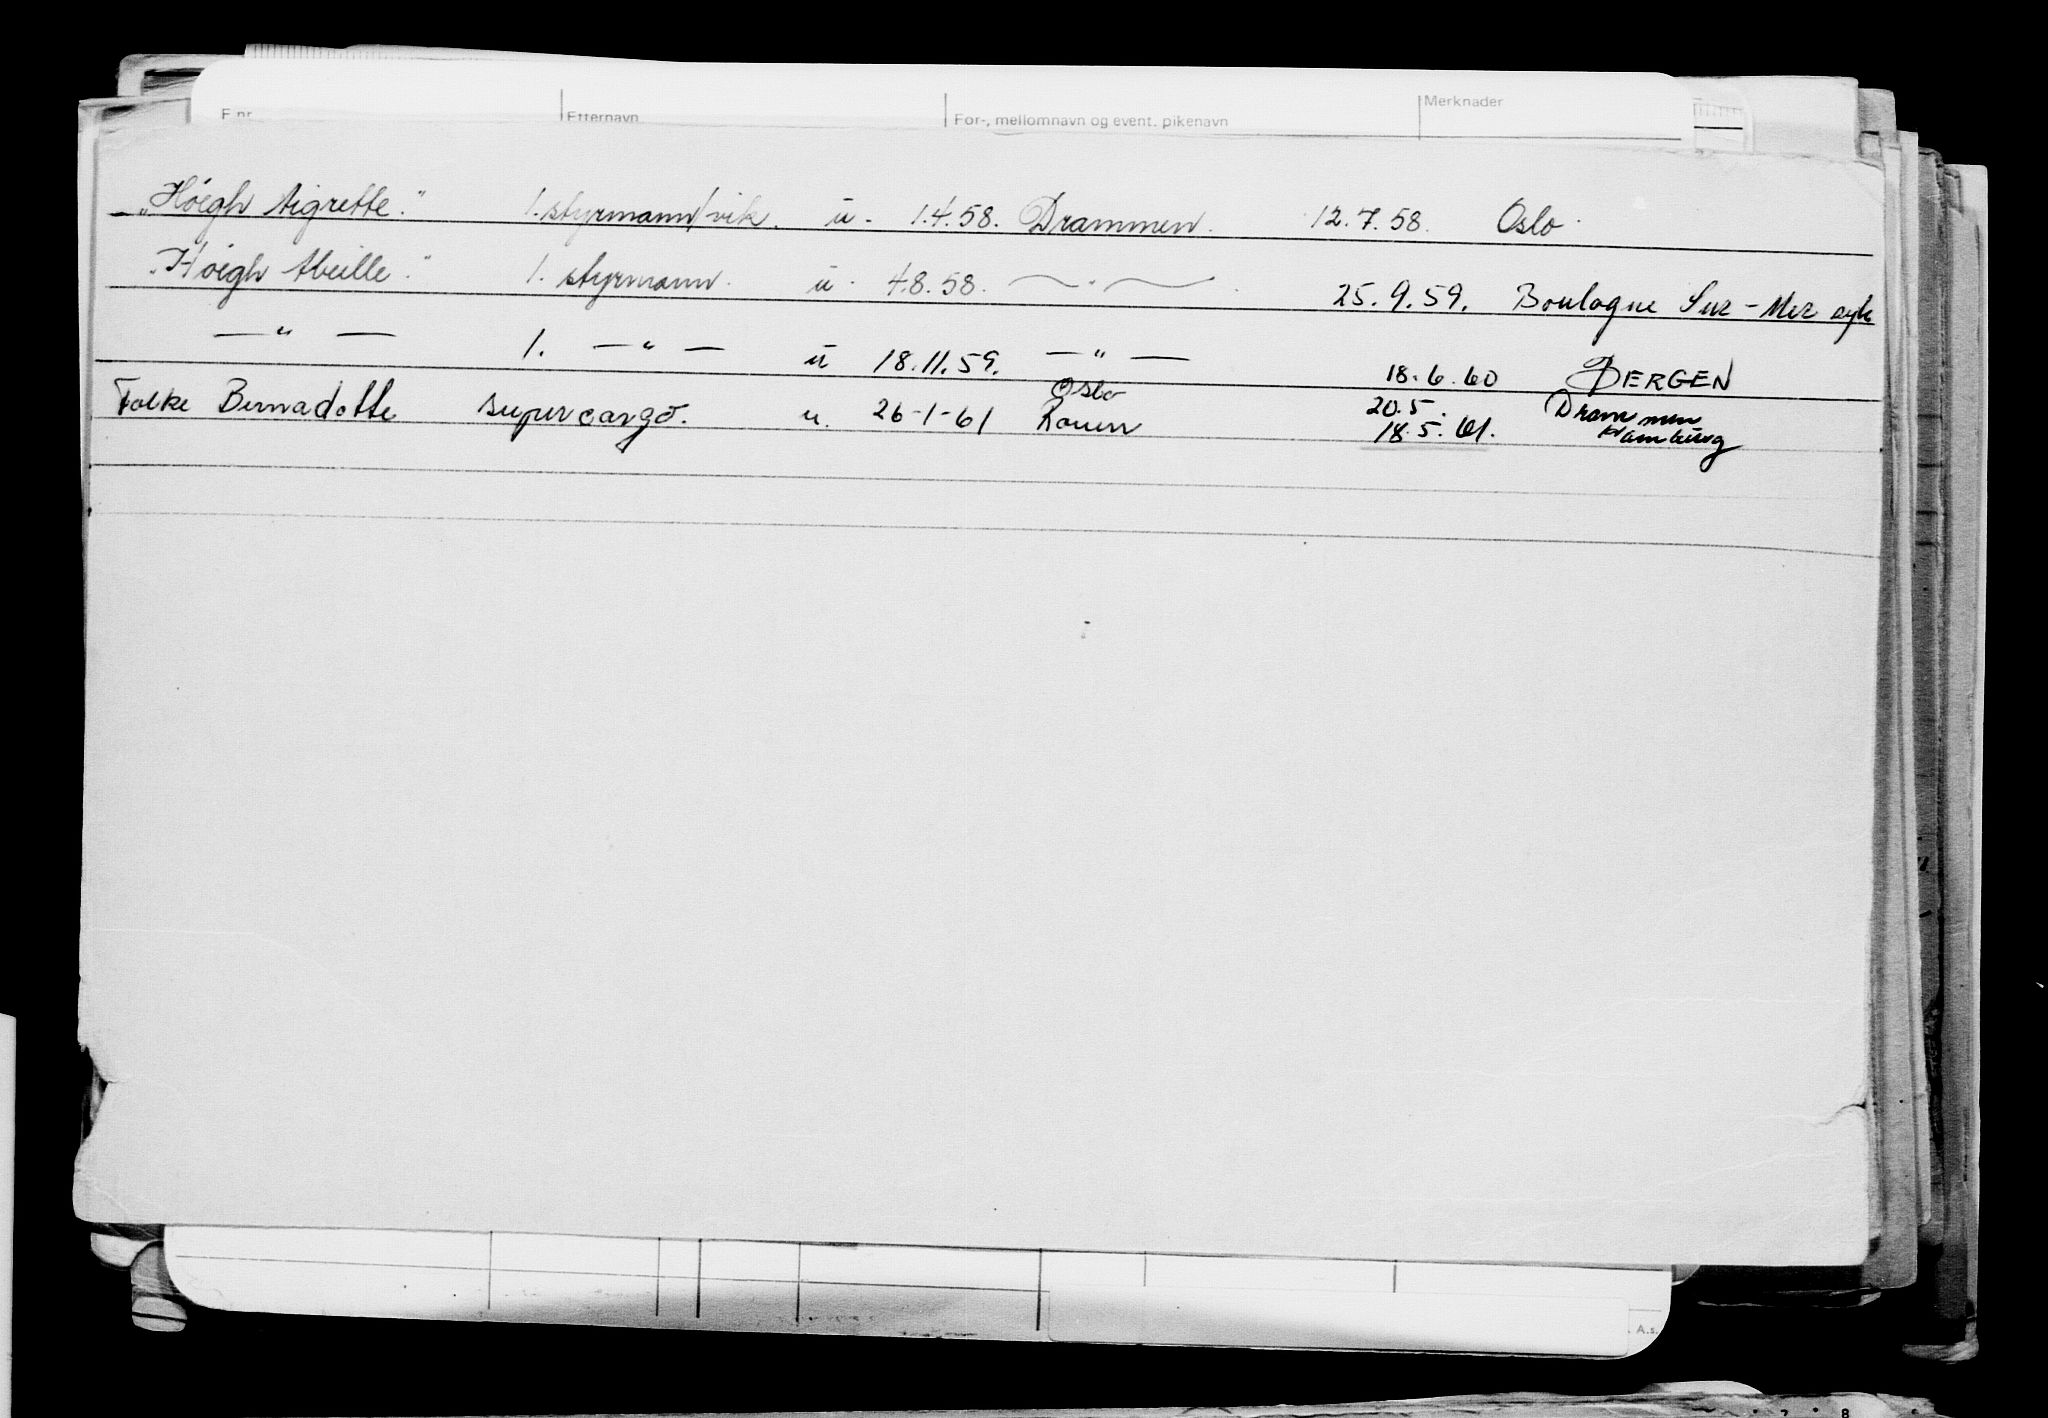 F.nr. Etternavn For-, mellomnavn og event. pikenavn Merknader
„Höegh Aigrette." 1. styrmann/vik. u. 1.4.58. Drammen. 12.7.58. Oslo.
„Höegh Abeille." 1. styrmann. u. 4.8.58. — " — 25.9.59. Boulogne Sur-Mer syk
— " — 1. — " — u 18.11.59. — " — 18.6.60 BERGEN
Oslo 20.5. Drammen
Folke Bernadotte supercargo. u. 26-1-61 Rouen 18.5.61. Hamburg
A.s.
7 8